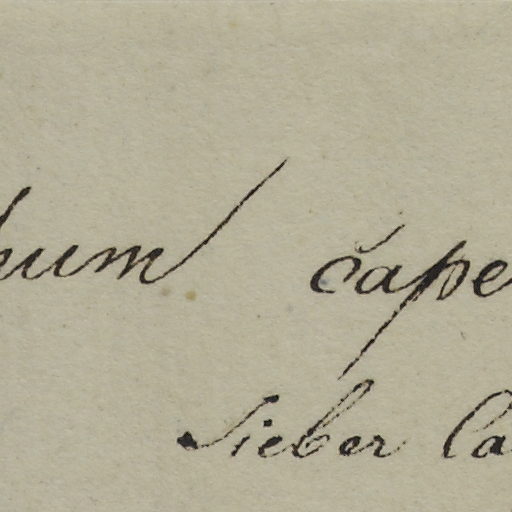 hum cape
Sieber Ca